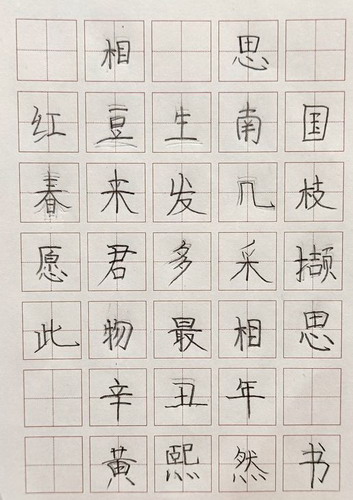 相思
红豆生南国
春来发几枝
愿君多采撷
此物最相思
辛丑年
黄熙然书